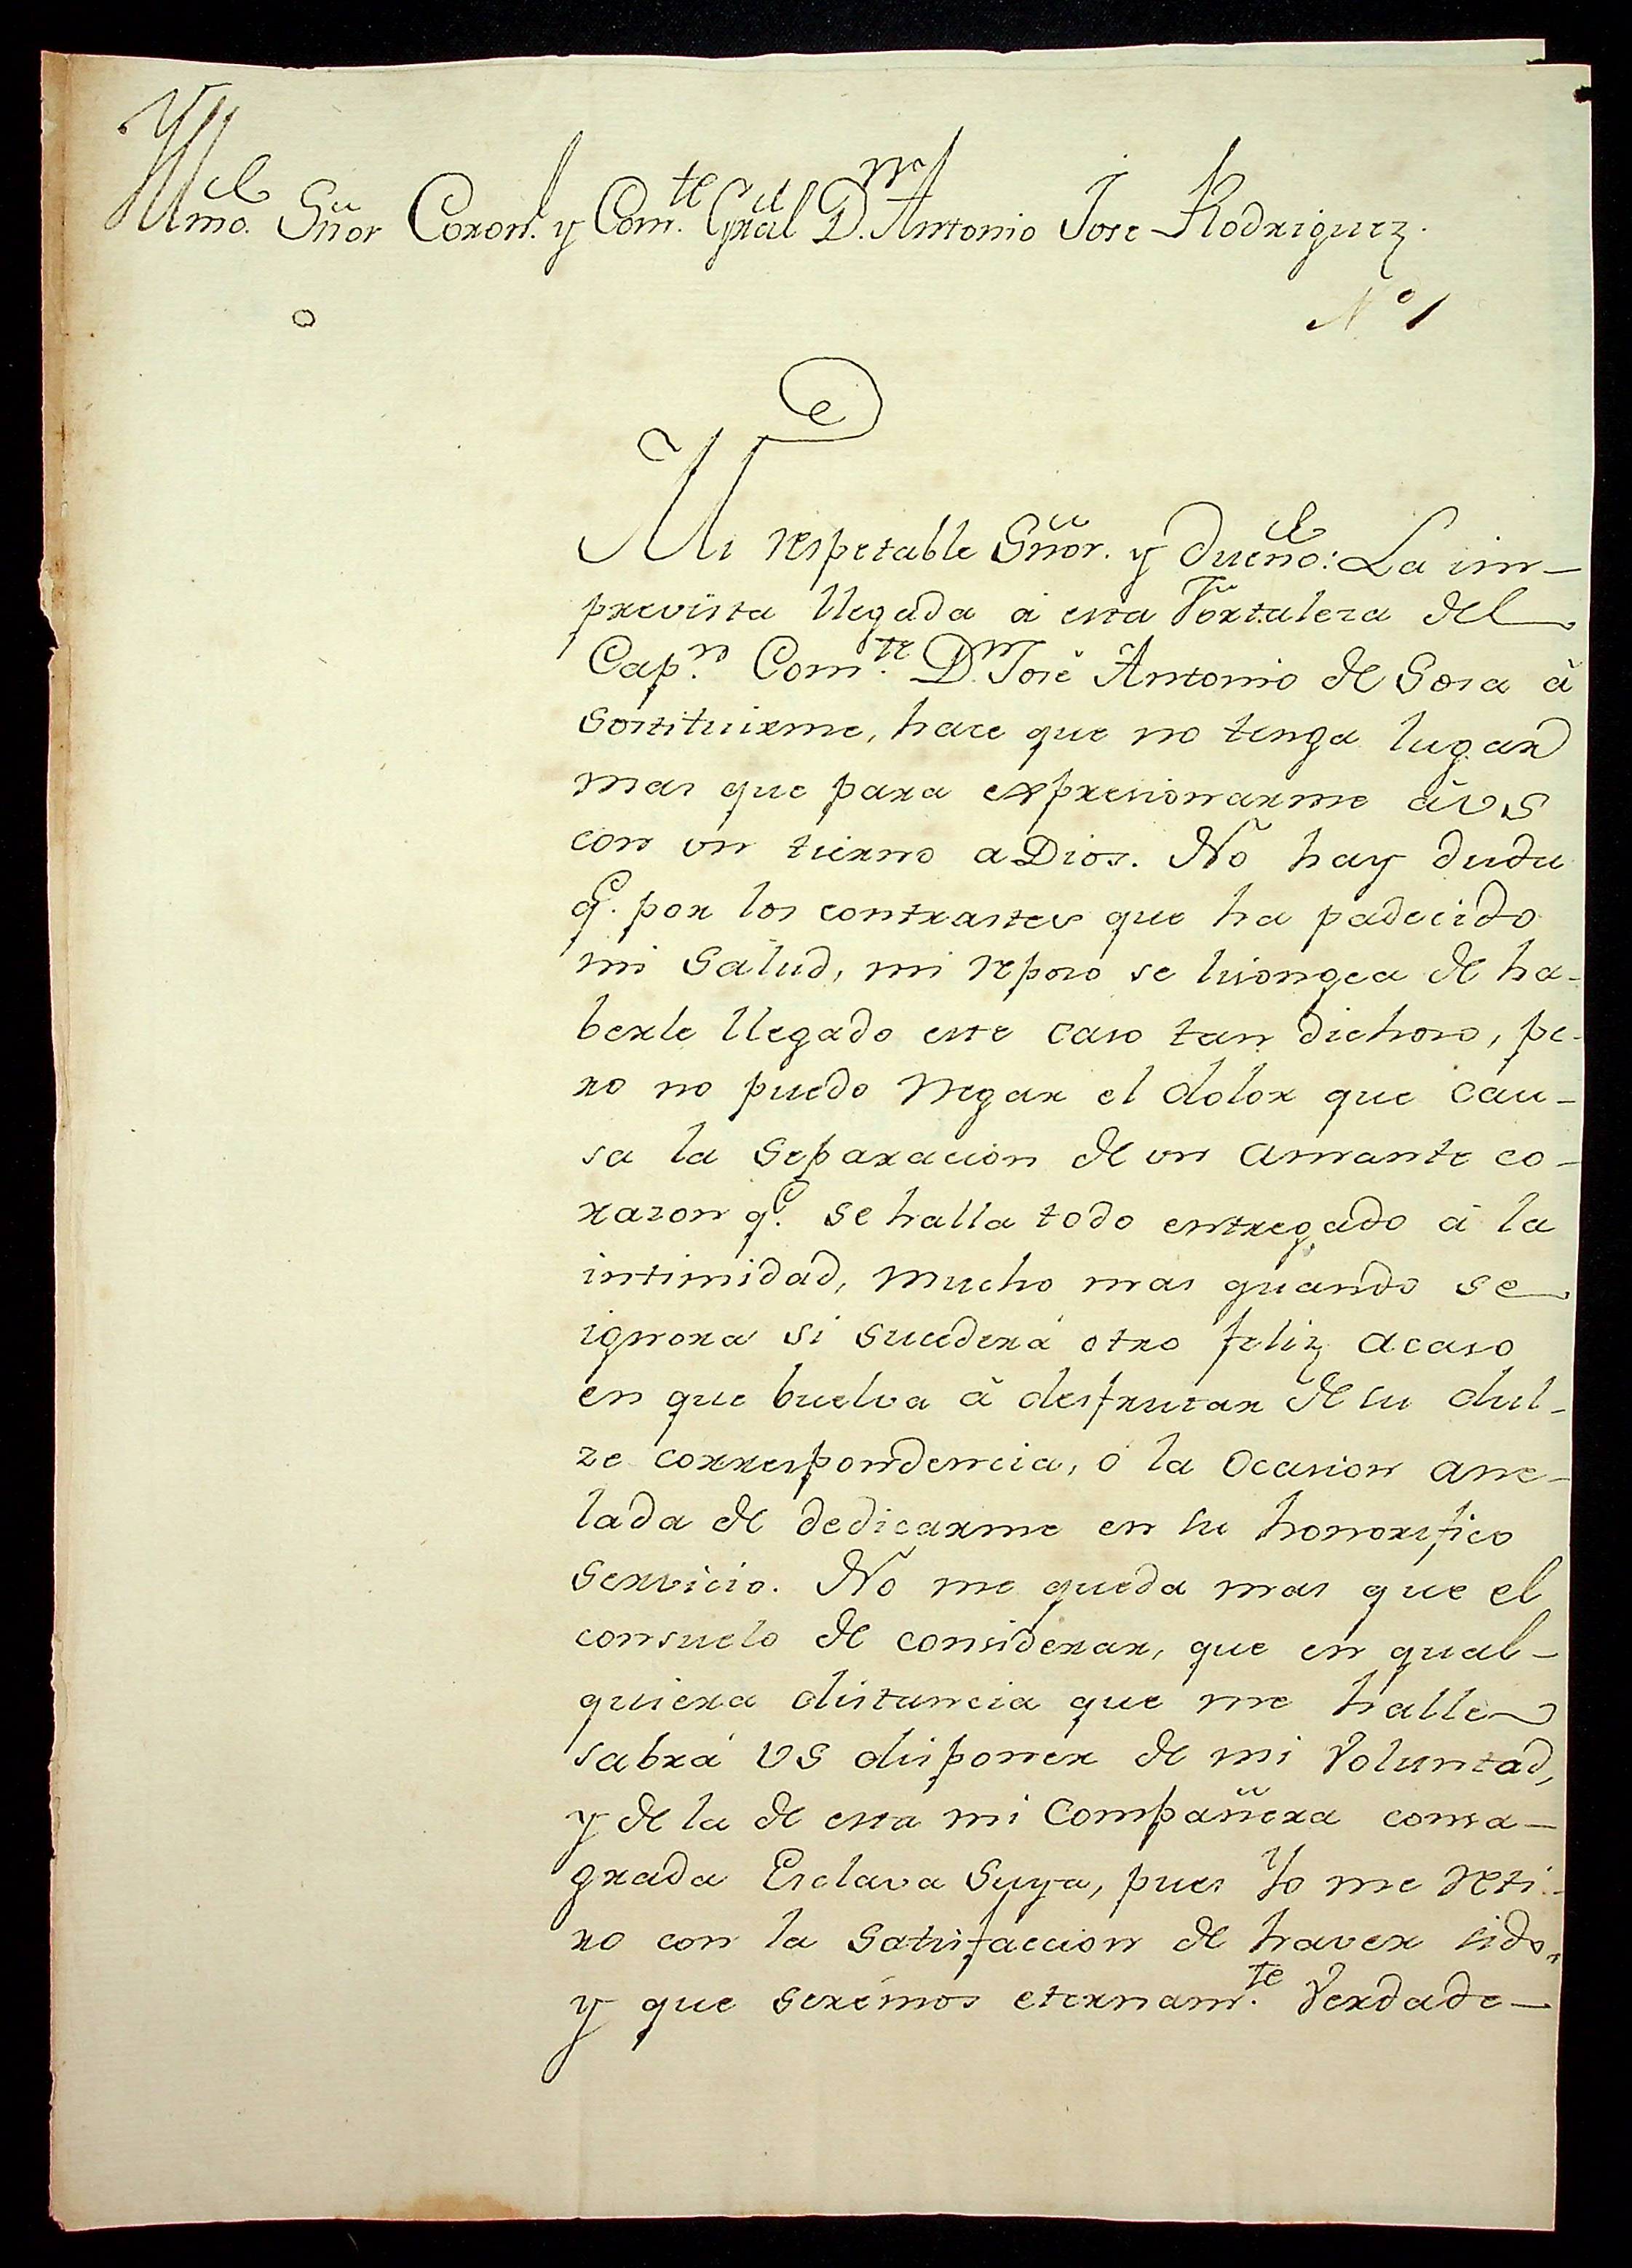 Yllmo. Sñor Coron.l y Com.te Gral D.n Antonio Jose Rodriguez.
Nº 1
Mi respetable Sñor. y dueño: La im-
prevista llegada á esta Fortaleza del
Cap.n Com.te D.n José Antonio de Sosa à
sostituirme, hace que no tenga lugar
mas que para expresionarme à VS
con un tierno a Dios. No hay duda
q.e por los contrastes que ha padecido
mi salud, mi reposo se lisongea de ha-
berle llegado este caso tan dichoso, pe-
ro no puedo negar el dolor que cau-
sa la separacion de un amante co-
razon q.e se halla todo entregado à la
intimidad, mucho mas quando se
ignora si sucederá otro feliz acaso
en que buelva à desfrutar de su dul-
ze correspondencia, ó la ocasion ane-
lada de dedicarme en su honorifico
servicio. No me queda mas que el
consuelo de considerar, que en qual-
quiera distancia que me halle
sabrá VS disponer de mi voluntad,
y de la de esta mi Compañera consa-
grada Esclava Suya, pues Yo me reti-
ro con la satisfaccion de haver sido,
y que serémos eternam.te Verdade-